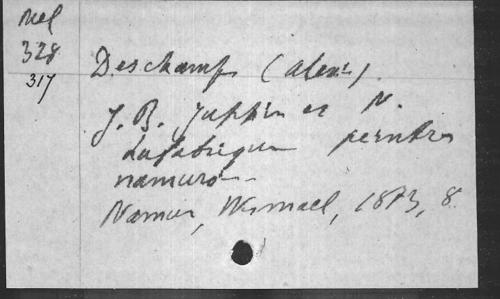 Mel
328
317
Deschamps (Alexis).
J. B. Juppin et N.
Lafabrique peintres
namurois
Namur, Wesmael, 1873, 8